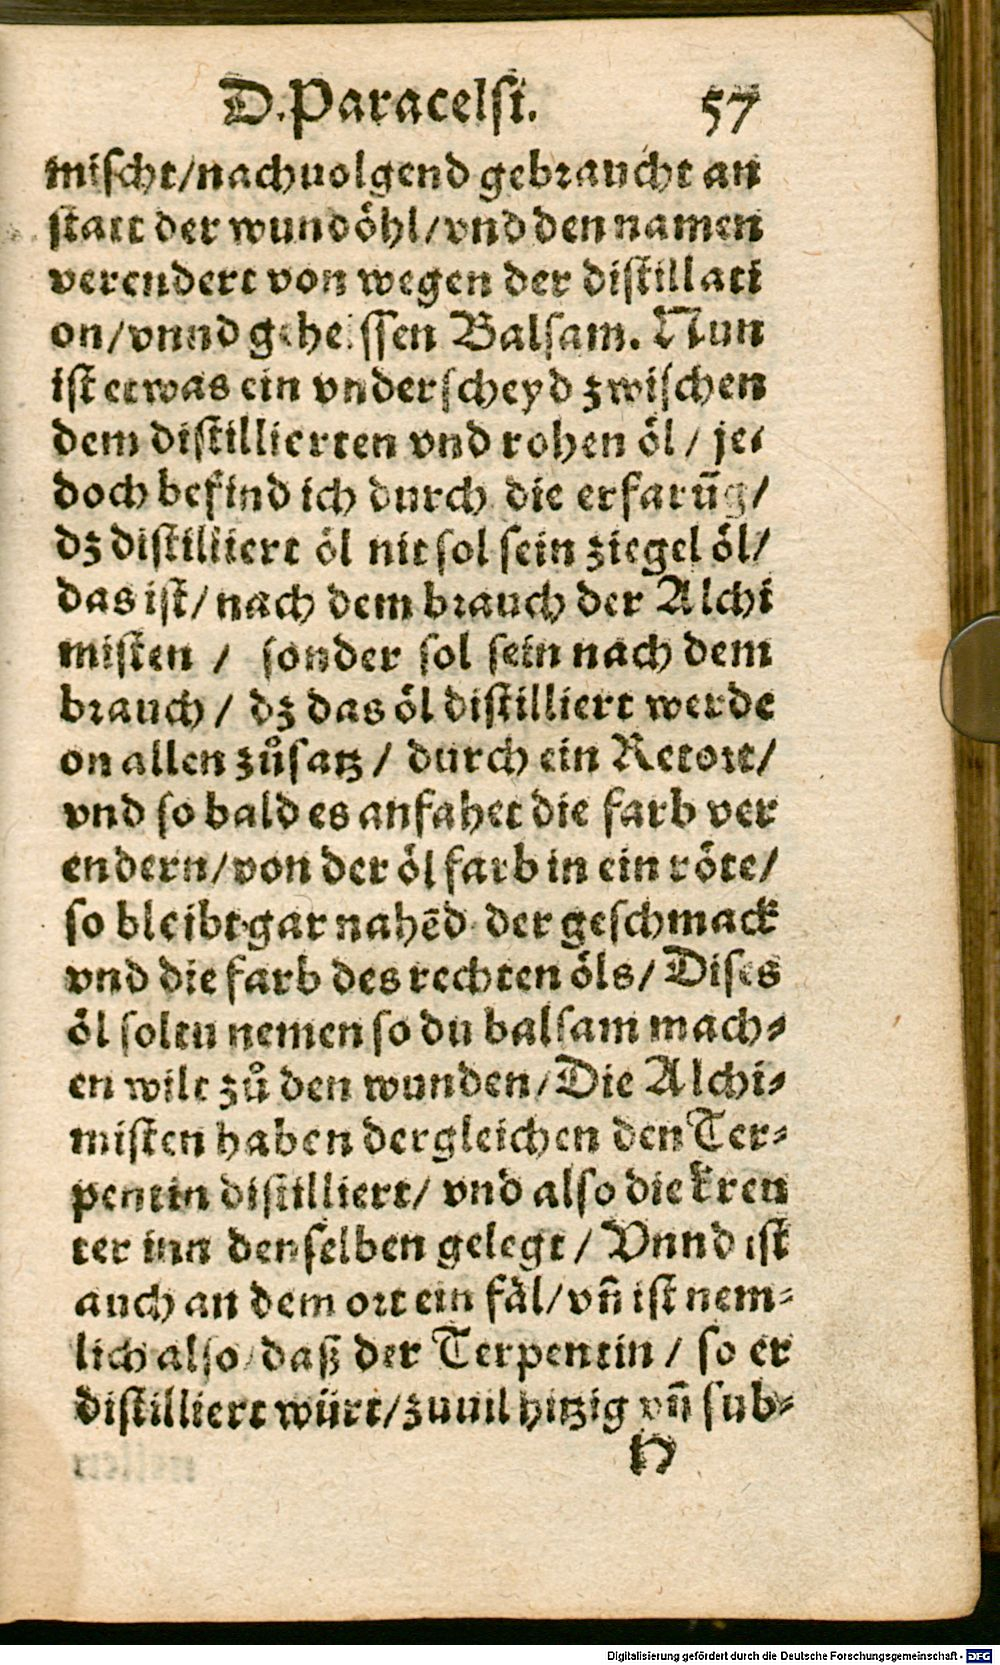 D. Paracelsi. 57
mischt/ nachuolgend gebraucht an
statt der wundöhl/ vnd den namen
verendert von wegen der distillati
on/ vnnd geheissen Balsam. Nun
ist etwas ein vnderscheyd zwischen
dem distillierten vnd rohen öl/ je⸗
doch befind ich durch die erfarūg/
dz distilliert öl nit sol sein ziegel öl/
das ist/ nach dem brauch der Alchi
misten / sonder sol sein nach dem
brauch/ dz das öl distilliert werde
on allen zůsatz/ durch ein Retort/
vnd so bald es anfahet die farb ver
endern/ von der öl farb in ein röte/
so bleibt gar nahēd der geschmack
vnd die farb des rechten öls/ Dises
öl soltu nemen so du balsam mach⸗
en wilt zů den wunden/ Die Alchi⸗
misten haben dergleichen den Ter⸗
pentin distilliert/ vnd also die kreu
ter inn denselben gelegt/ Vnnd ist
auch an dem ort ein fäl/ vn̄ ist nem⸗
lich also/ daß der Terpentin/ so er
distilliert würt/ zuuil hitzig vn̄ sub⸗
H
Digitalisierung gefördert durch die Deutsche Forschungsgemeinschaft - DFG